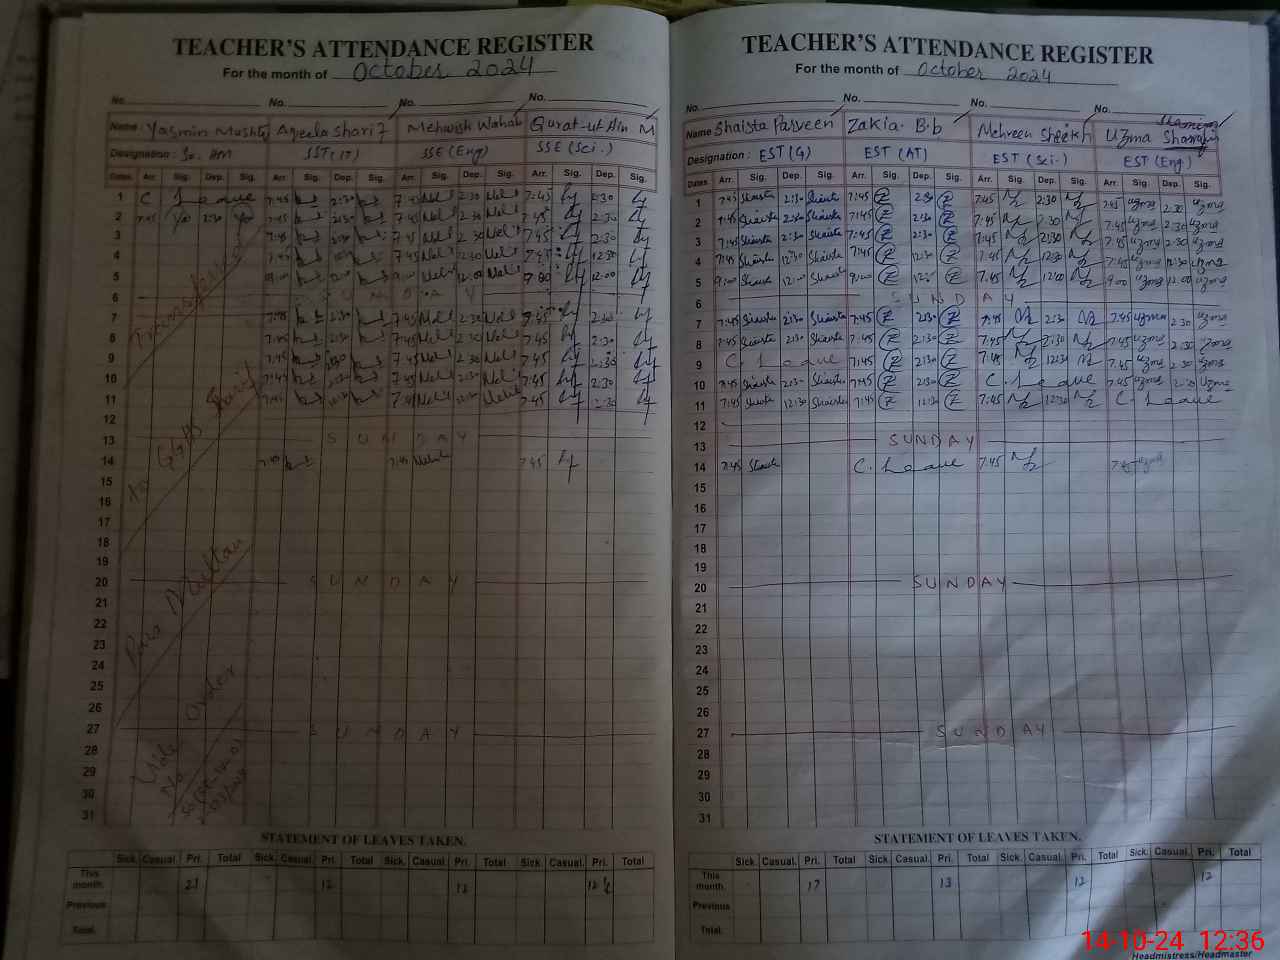 TEACHER'S ATTENDANCE REGISTER
For the month of October 2024
No. No. No. No.
Name: Yasmin Mushtaq Aqeela Sharif Mehwish Wahab Qurat-ul-Ain M
Designation: Sr. HM SST(IT) SSE (Eng) SSE (Sci.)
Dates Arr. Sig. Dep. Sig. Arr. Sig. Dep. Sig. Arr. Sig. Dep. Sig. Arr. Sig. Dep. Sig.
1 C Leave 7:45 2:30 7:45 2:30 7:45 2:30
2 7:45 2:30 7:45 2:30 7:45 2:30 7:45 2:30
3 7:45 2:30 7:45 2:30 7:45 2:30
4 7:45 12:30 7:45 2:30 7:45 12:30
5 9:00 12:00 9:00 12:00 9:00 12:00
6 SUNDAY
7 7:45 2:30 7:45 2:30 7:45 2:30
8 7:45 2:30 7:45 2:30 7:45 2:30
9 7:45 2:30 7:45 2:30 7:45 2:30
10 7:45 2:30 7:45 2:30 7:45 2:30
11 7:45 12:30 7:45 7:45 2:30
12
13 SUNDAY
14 7:45 7:45 7:45
15
16
17
18
19
20 SUNDAY
21
22
23
24
25
26
27 SUNDAY
28
29
30
31
Multan
Order
No
STATEMENT OF LEAVES TAKEN.
Sick. Casual. Pri. Total Sick. Casual. Pri. Total Sick. Casual. Pri. Total Sick. Casual. Pri. Total
This month. 21 12 12 12
Previous
Total.
TEACHER'S ATTENDANCE REGISTER
For the month of October 2024
No. No. No. No.
Name Shaista Parveen Zakia B.b Mehreen Sheikh Uzma
Designation: EST (G) EST (AT) EST (Sci.) EST (Eng)
Dates Arr. Sig. Dep. Sig. Arr. Sig. Dep. Sig. Arr. Sig. Dep. Sig. Arr. Sig. Dep. Sig.
1 7:45 Shaista 2:30 Shaista 7:45 Z 2:30 Z 7:45 2:30 7:45 uzma 2:30 uzma
2 7:45 Shaista 2:30 Shaista 7:45 Z 2:30 Z 7:45 2:30 7:45 uzma 2:30 uzma
3 7:45 Shaista 2:30 Shaista 7:45 Z 2:30 Z 7:45 2:30 7:45 uzma 2:30 uzma
4 7:45 Shaista 12:30 Shaista 7:45 Z 12:30 Z 7:45 12:30 7:45 uzma 12:30 uzma
5 9:00 Shaista 12:00 Shaista 9:00 Z 12: Z 7:45 12:00 9:00 uzma 12:00 uzma
6 SUNDAY
7 7:45 Shaista 2:30 Shaista 7:45 Z 2:30 Z 7:45 2:30 7:45 uzma 2:30 uzma
8 7:45 Shaista 2:30 Shaista 7:45 Z 2:30 Z 7:45 2:30 7:45 uzma 2:30 uzma
9 C. Leave 7:45 Z 2:30 Z 7:45 12:30 7:45 uzma 2:30 uzma
10 7:45 Shaista 2:30 Shaista 7:45 Z 2:30 Z C. Leave 7:45 uzma 2:30 uzma
11 7:45 Shaista 12:30 Shaista 7:45 Z 12:30 Z 7:45 12:30 C. Leave
12
13 SUNDAY
14 7:45 Shaista C. Leave 7:45 7:45 uzma
15
16
17
18
19
20 SUNDAY
21
22
23
24
25
26
27 SUNDAY
28
29
30
31
STATEMENT OF LEAVES TAKEN.
Sick. Casual. Pri. Total Sick. Casual. Pri. Total Sick. Casual. Pri. Total Sick. Casual. Pri. Total
This month. 17 13 12 12
Previous
Total.
14-10-24 12:36
Headmistress/Headmaster